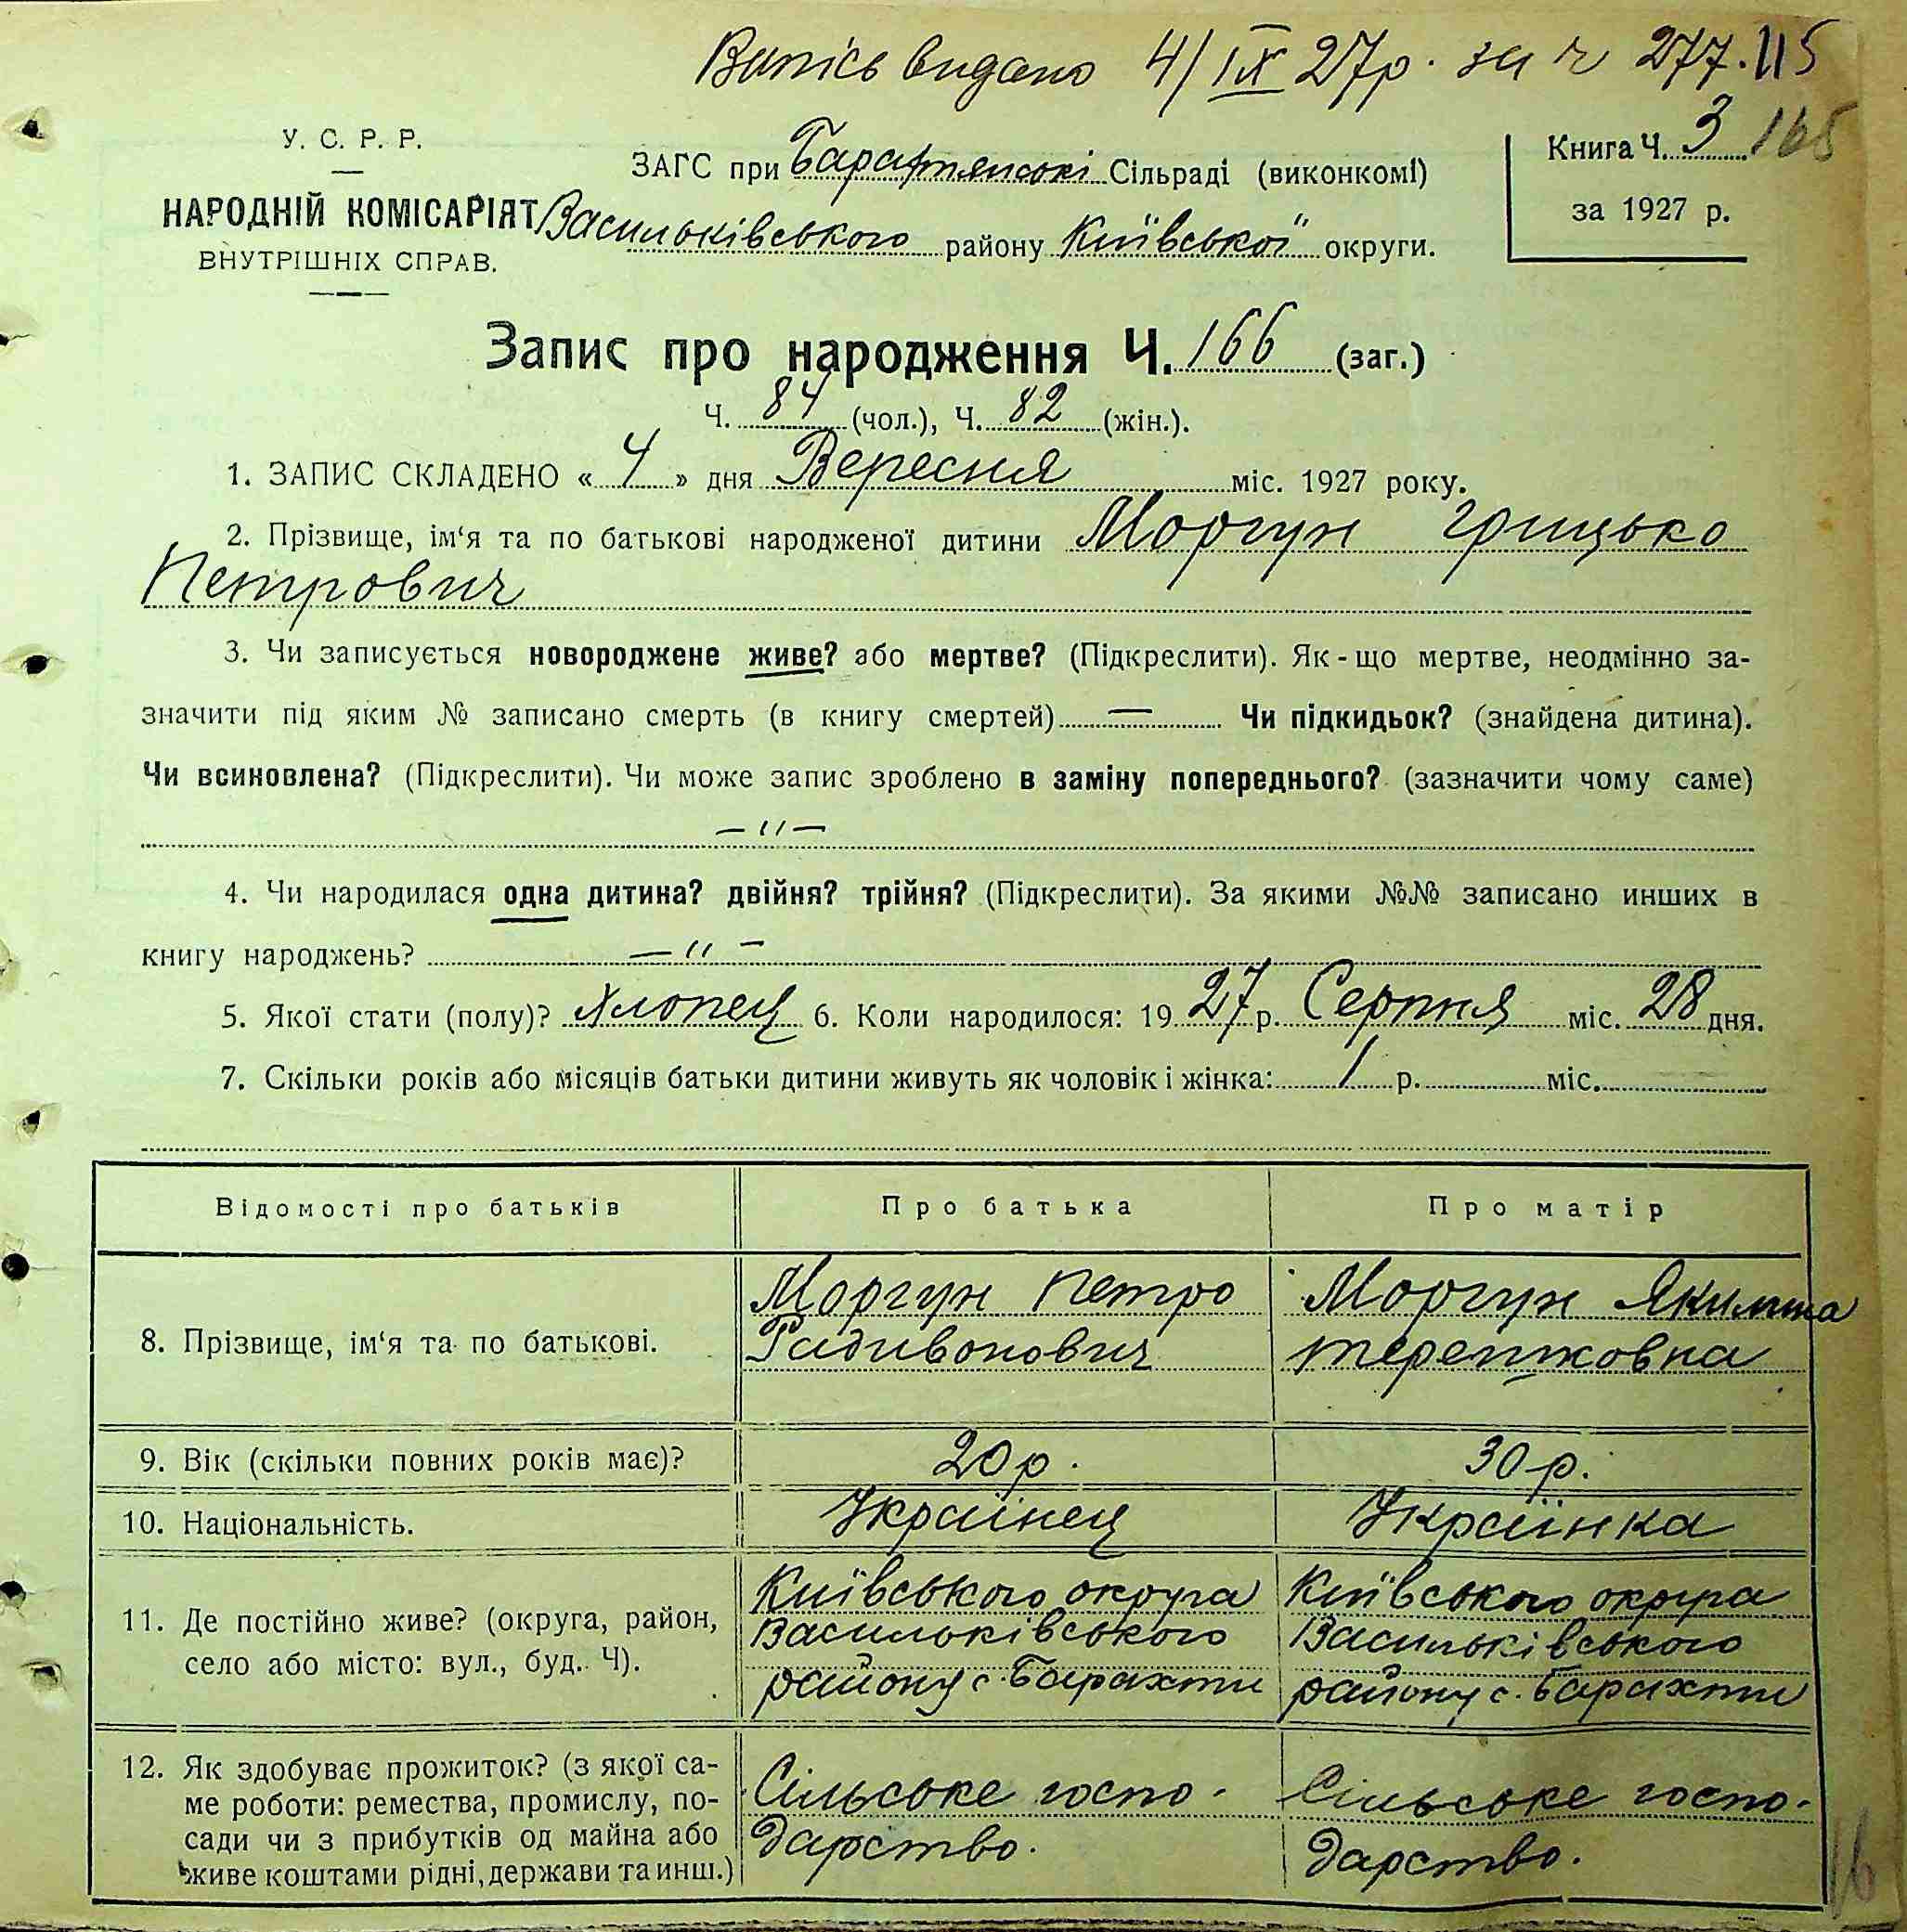 Випісь видано 4/IX 27р. за ч 277. 115
У. С. Р. Р.
НАРОДНІЙ КОМІСАРІЯТ
ВНУТРІШНІХ СПРАВ.
ЗАГС при Барахтянські Сільраді (виконкомі)
Васильківського району Київської округи.
Книга Ч. 3 165
за 1927 р.
Запис про народження Ч. 166 (заг.)
Ч. 84 (чол.), Ч. 82 (жін.).
1. ЗАПИС СКЛАДЕНО « 4 » дня Вересня міс. 1927 року.
2. Прізвище, ім‘я та по батькові народженої дитини Моргун Грицько
Петрович
3. Чи записується новороджене живе? або мертве? (Підкреслити). Як-що мертве, неодмінно за-
значити під яким № записано смерть (в книгу смертей) — Чи підкидьок? (знайдена дитина).
Чи всиновлена? (Підкреслити). Чи може запис зроблено в заміну попереднього? (зазначити чому саме)
— " —
4. Чи народилася одна дитина? двійня? трійня? (Підкреслити). За якими №№ записано инших в
книгу народжень? — " —
5. Якої стати (полу)? Хлопец 6. Коли народилося: 19 27 р. Серпня міс. 28 дня.
7. Скільки років або місяців батьки дитини живуть як чоловік і жінка: 1 р. міс.
Відомості про батьків Про батька Про матір
8. Прізвище, ім‘я та по батькові.
Моргун Петро
Радивонович
Моргун Якилина
Терешковна
9. Вік (скільки повних років має)? 20 р. 30 р.
10. Національність. Украінец Украінка
11. Де постійно живе? (округа, район,
село або місто: вул., буд. Ч).
Київського округа
Васильківського
району с. Барахти
Київського округа
Васильківського
району с. Барахти
12. Як здобуває прожиток? (з якої са-
ме роботи: ремества, промислу, по-
сади чи з прибутків од майна або
живе коштами рідні, держави та инш.)
Сільське госпо-
дарство.
Сільське госпо-
дарство.
16